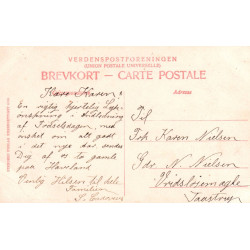 VERDENSPOSTFORENINGEN
(UNION POSTALE UNIVERSELLE)
BREVKORT – CARTE POSTALE
Adresse
Kære Karen!
En rigtig hjertelig Lyk-
ønskning i Anledning
af Fødselsdagen, med
ønsket om alt godt
i det nye aar sendes
Dig af os to gamle
paa
Venlig Hilsen til dele
Familien
Til
Frk. Karen Nielsen
Gdr. N. Nielsen
Vridsløsemagle
Taastrup